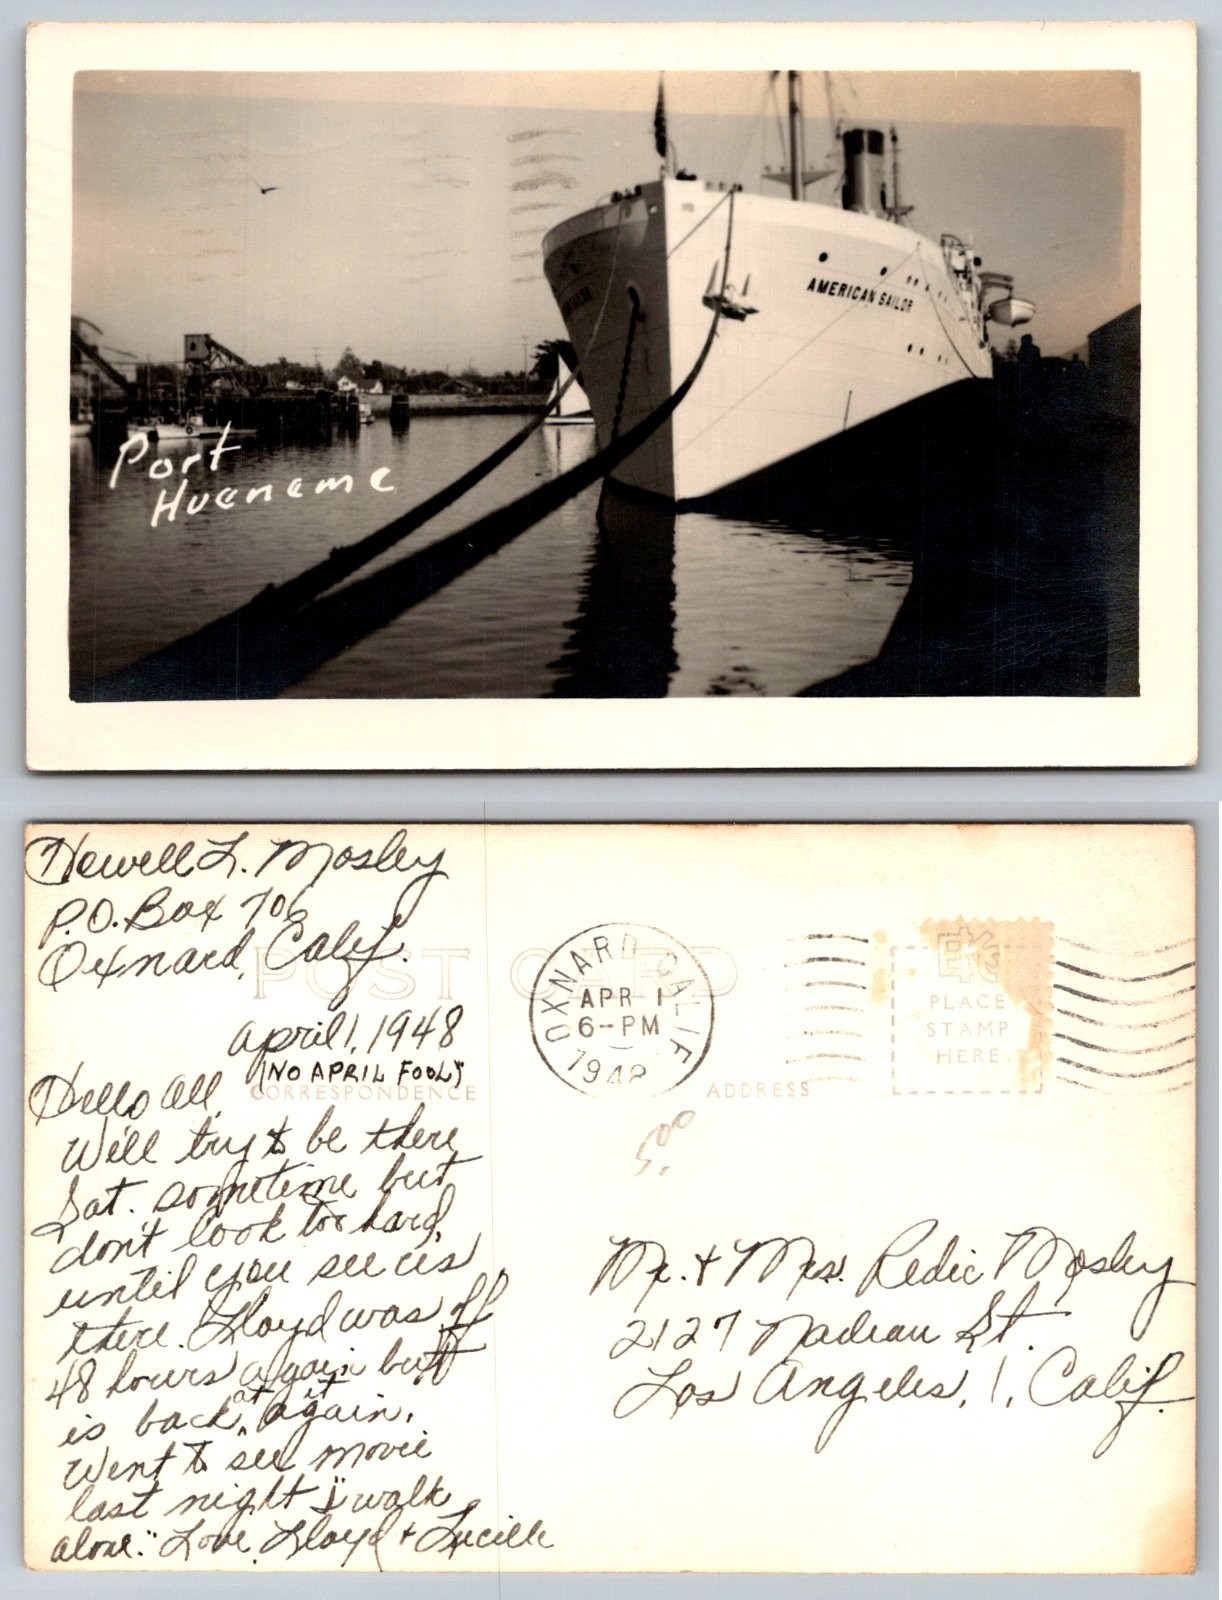 AMERICAN SAILOR
Port
Hueneme
Newell L. Mosley
P.O. Box 706
Oxnard, Calif.
POST CARD
OXNARD CALIF
APR 1
6-PM
1948
PLACE
STAMP
HERE
April 1, 1948
(NO APRIL FOOL")
CORRESPONDENCE
ADDRESS
Hello All,
We'll try to be there
Sat. sometime but
don't look too hard,
until you see us
there. Lloyd was off
48 hours again but
is back at it again.
Went to see movie
last night "I walk
alone." Love, Lloyd & Lucille
5.00
Mr. & Mrs. Redic Mosley
2127 Nadeau St.
Los Angeles, 1, Calif.